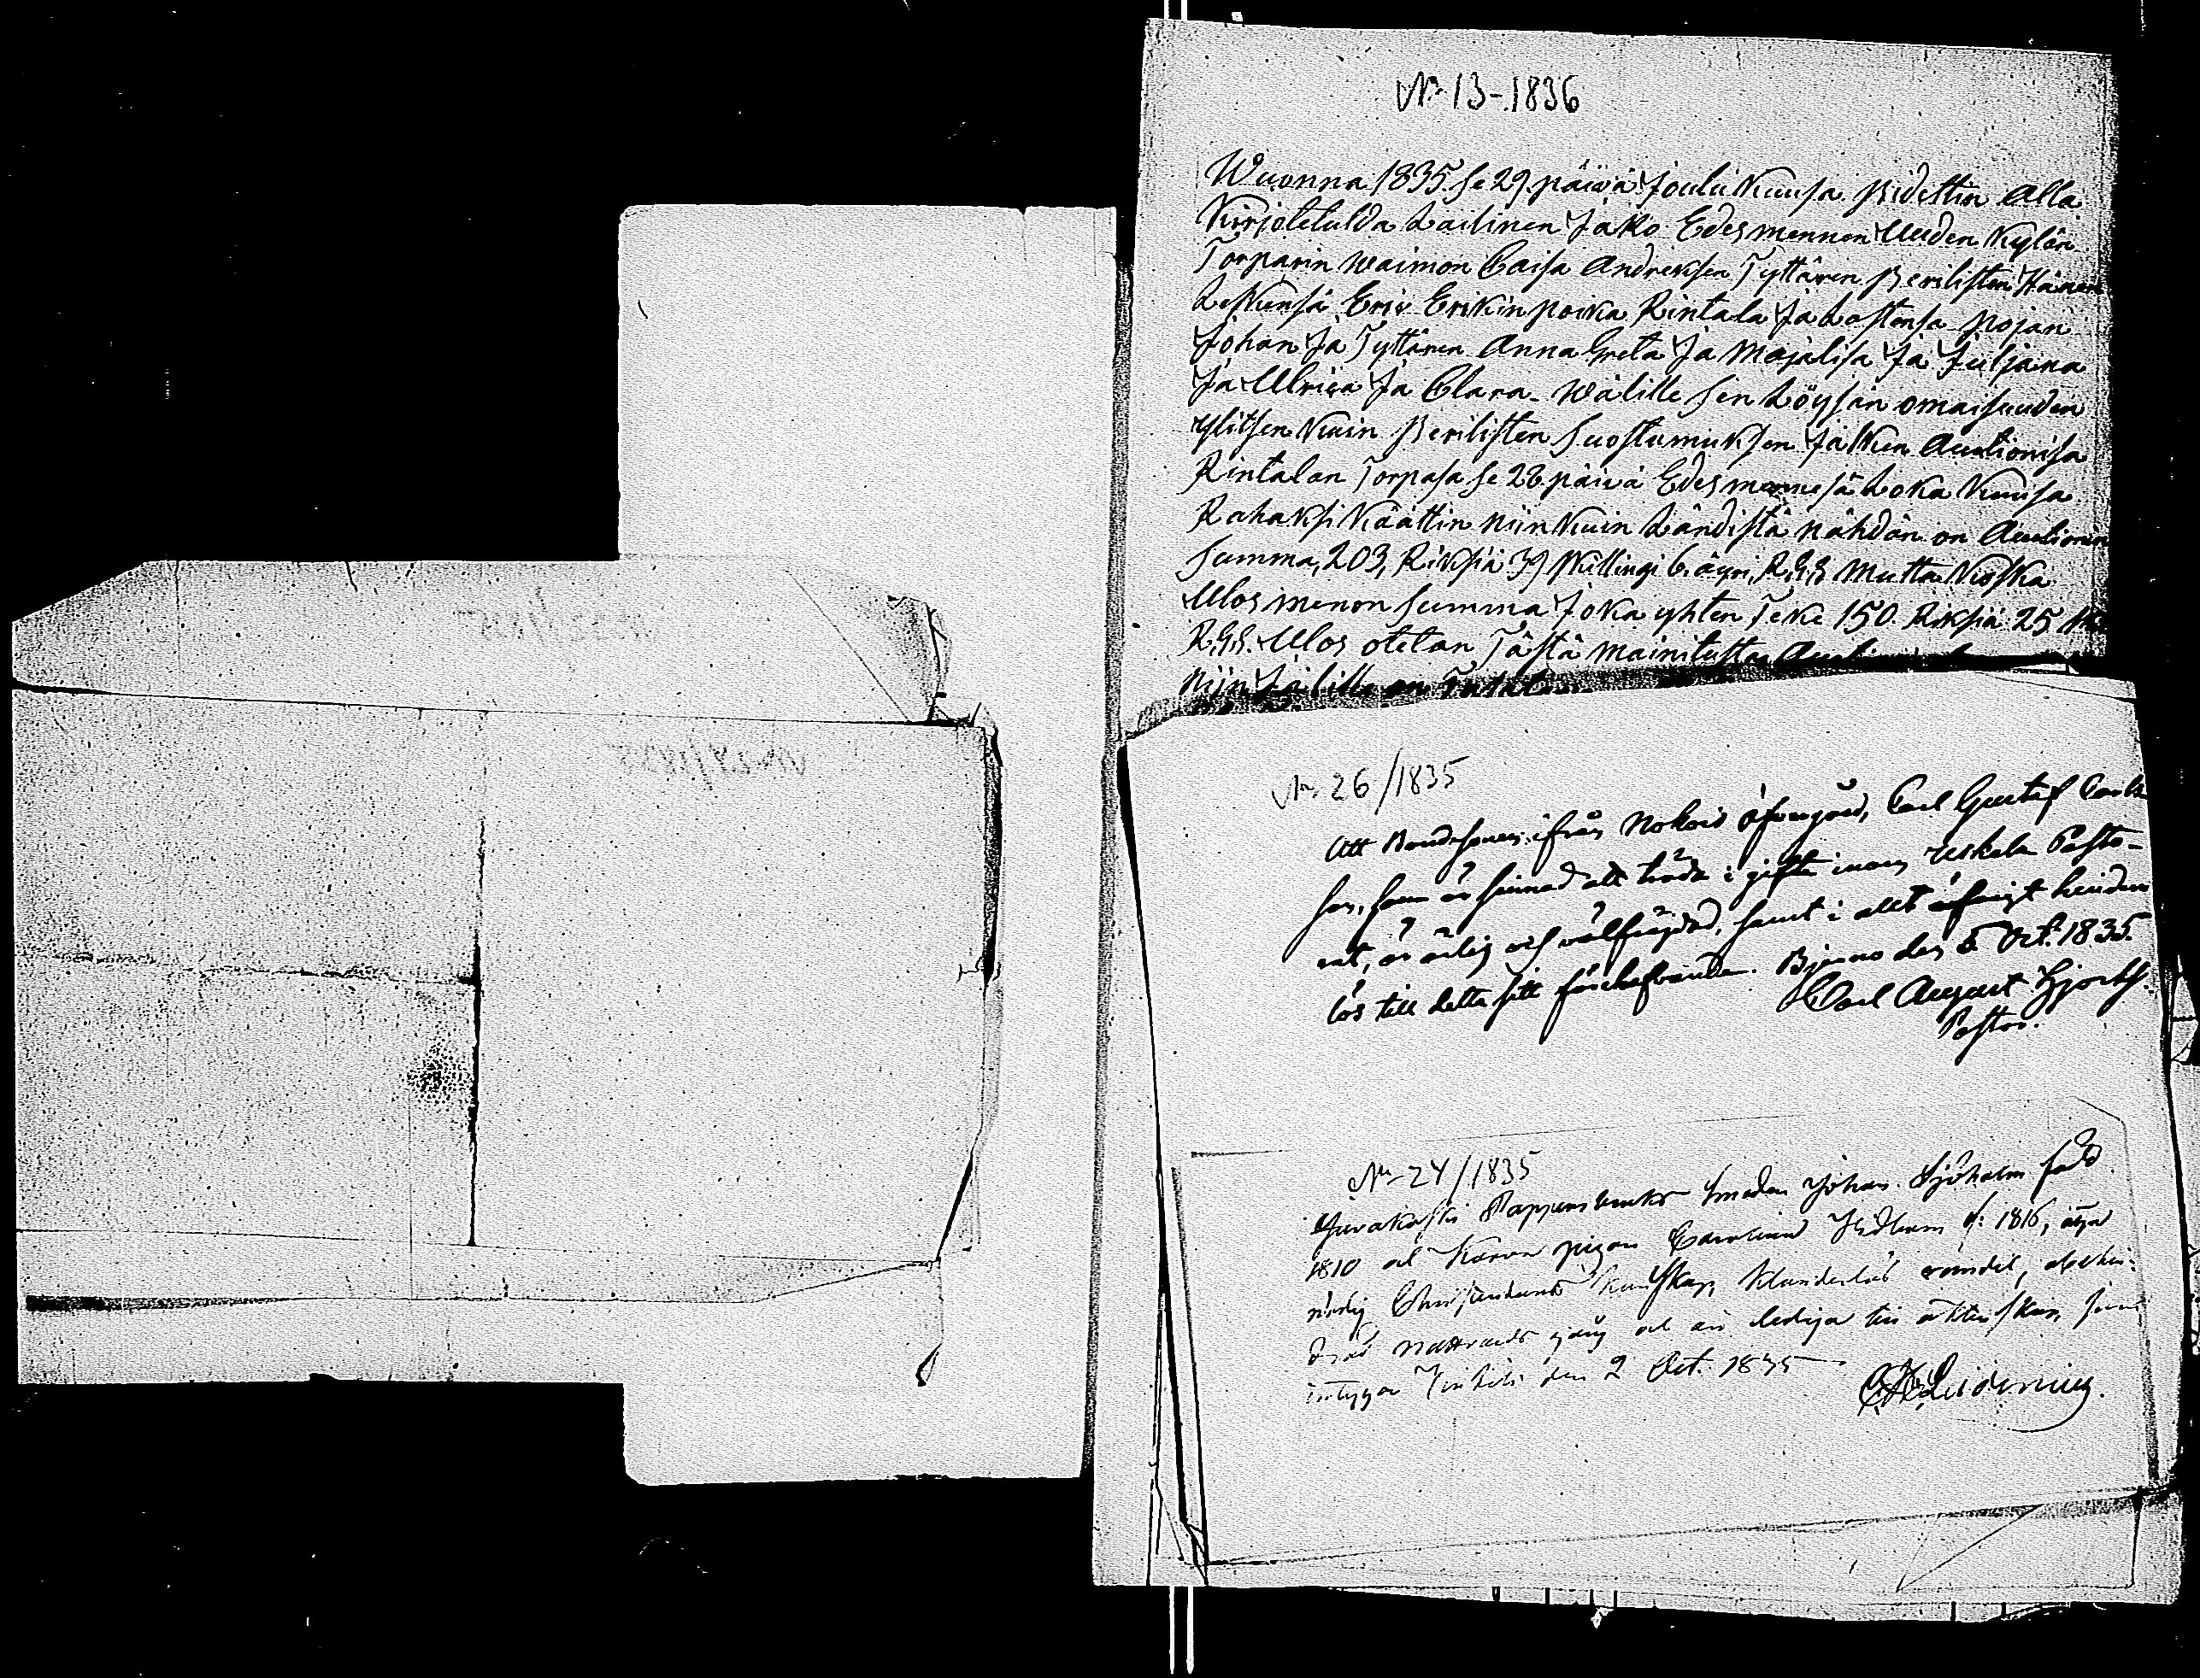 № 13-1836
Wuonna 1835 se 29 päivä Joulu Kuusa pidettin Alla
Kirjotetulda Lailinen Jako Edesmennen Uuden Kylän
Torparin waimon Caisa Andreksen Tyttären Perilisten Hänen
Leskensä Eric Erikin poika Rintala Ja Lastensa pojan
Johan Ja Tyttären Anna Greta Ja Majalisa Ja Juljana
Ja Ulrica Ja Clara - Wälille sen Löysän omaisuuden
ylitsen Kuin Perilisten Suostumuksen Jälken Auctionisa
Rintalan Torpasa se 28 päivä Edesmennesä Loka Kuusa
Rahaksi Käättin niin Kuin Tändistä nähdän on Auctionin
Summa, 203, Riksiä 39 Killingi 6 äyri, R.G.S mutta Koska
Ulos menon Summa Joka yhten Teke 150 Riksiä 25
R.G.S. Ulos otetan Tästä mainitusta
niin Jä
№ 26/1835
Att Bondesonen ifrån Nokois öfvergård, Carl Gustaf Carls
son, som är sinnad att träda i gifte inom Uskela Pasto-
rat, är ärlig och välfrägdad, samt i allt öfrigt hinder
lös till detta sitt förehafvande. Bjerno den 5 Oct. 1835.
Carl August Hjorth.
Pastor.
№ 24/1835
Juvakoski Pappersbruks Smeden Johan Sjöholm född
1810 och pigan Carolina f: 1816, äga
nödig Christendoms kunskap, klanderlös vandel,
Nattvards gång och äro lediga till äktenskap, som
intygar den 2 Oct. 1835